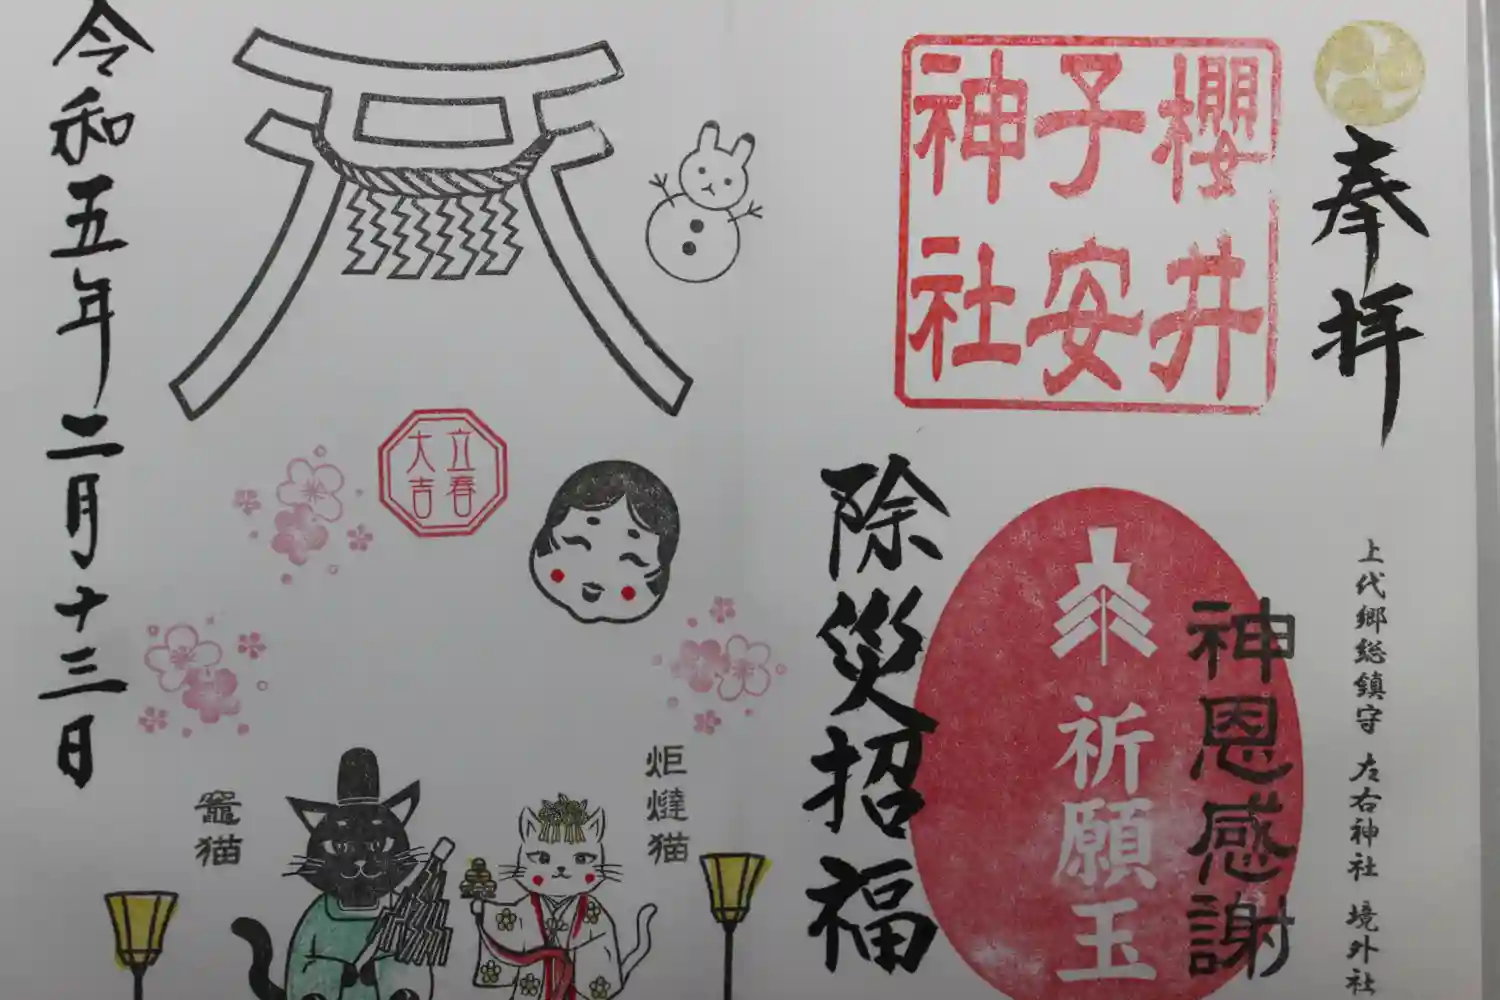 奉拝
上代郷総鎮守 左右神社 境外社
櫻井
子安
神社
神恩感謝
祈願玉
除災招福
立春
大吉
炬燵猫
竈猫
令和五年二月十三日